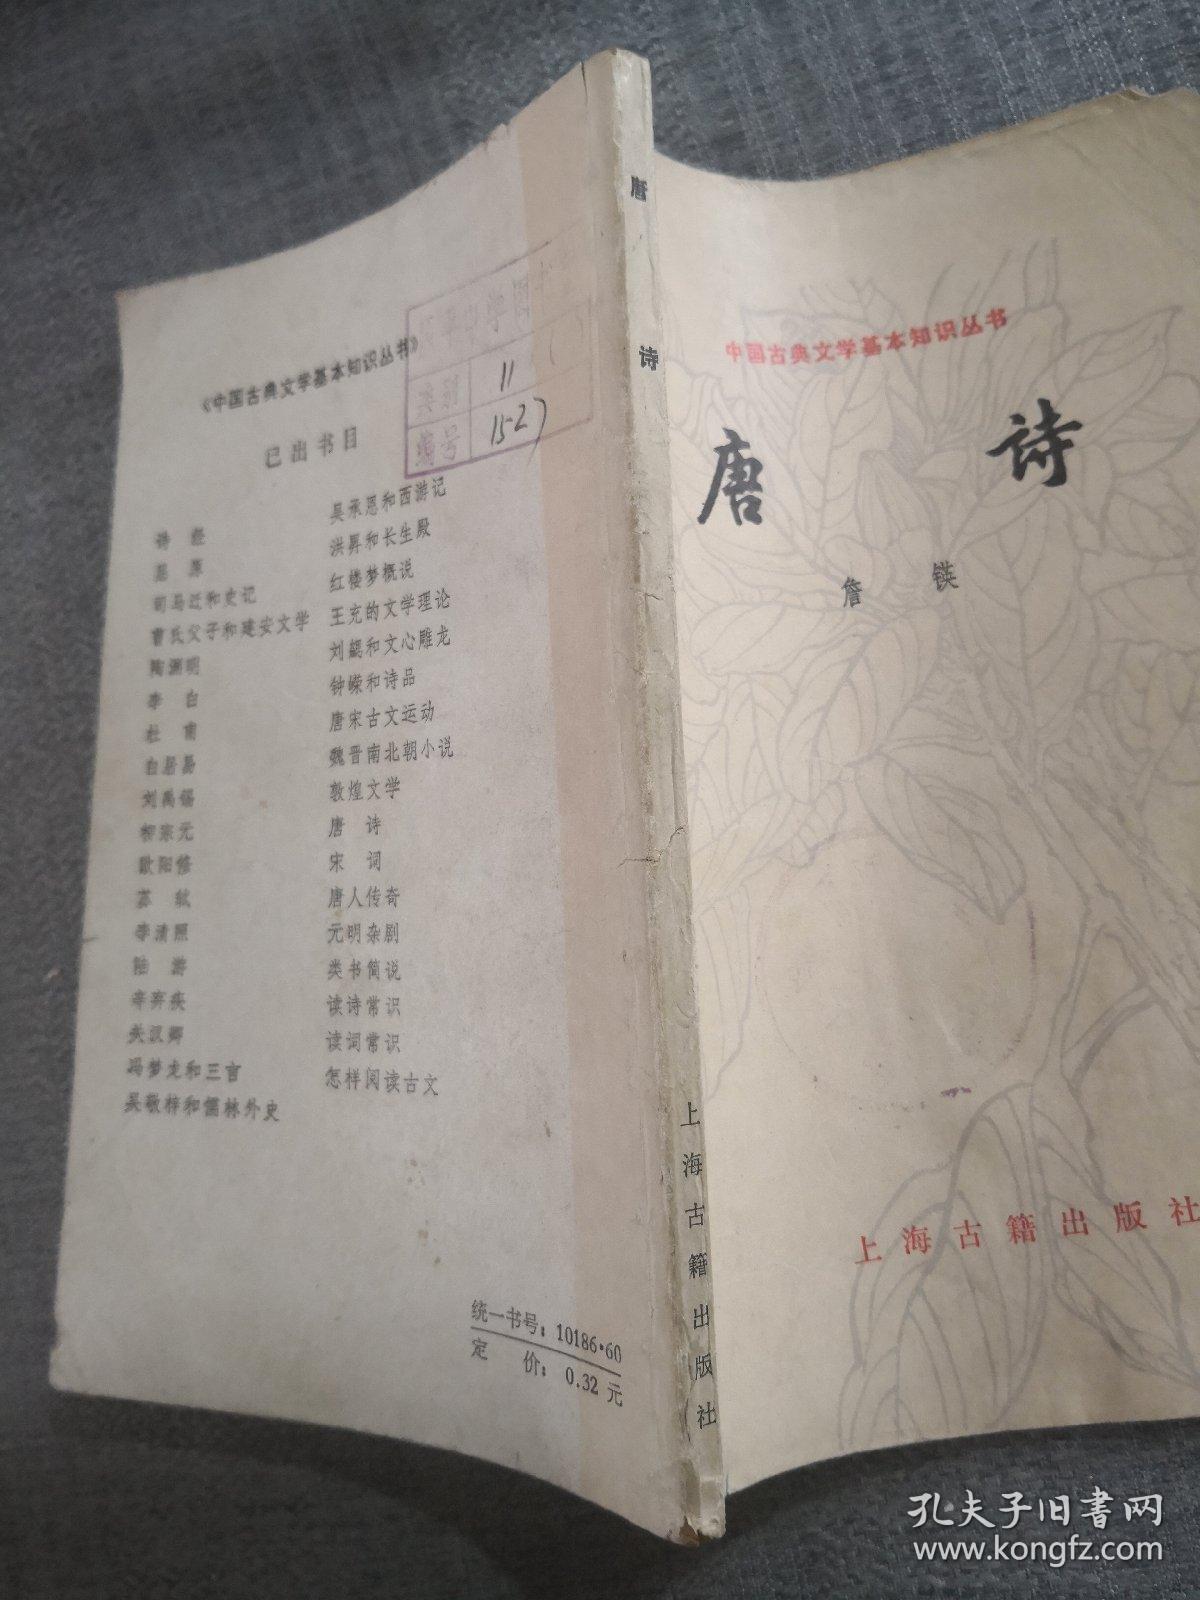 《中国古典文学基本知识丛书》
已出书目
诗 经
屈 原
司马迁和史记
曹氏父子和建安文学
陶渊明
李 白
杜 甫
白居易
刘禹锡
柳宗元
欧阳修
苏 轼
李清照
陆 游
辛弃疾
关汉卿
冯梦龙和三言
吴敬梓和儒林外史
吴承恩和西游记
洪昇和长生殿
红楼梦概说
王充的文学理论
刘勰和文心雕龙
钟嵘和诗品
唐宋古文运动
魏晋南北朝小说
敦煌文学
唐 诗
宋 词
唐人传奇
元明杂剧
类书简说
读诗常识
读词常识
怎样阅读古文
11
编号 1527
统一书号：10186·60
定 价：0.32 元
唐诗
上海古籍出版社
中国古典文学基本知识丛书
唐 诗
詹 锳
上海古籍出版社
孔夫子旧书网
www.kongfz.com